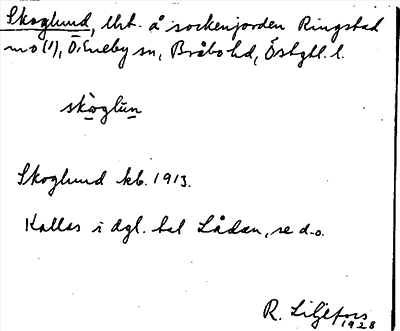 Skoglund, lht. å sockenjorden Ringstad
mo (1), Ö. Eneby sn, Bråbo hd, Östgtl. l.
skòglùn
Skoglund kb. 1913.
Kallas i dgl. tal Lådan, se d.o.
R. Liljefors
1928